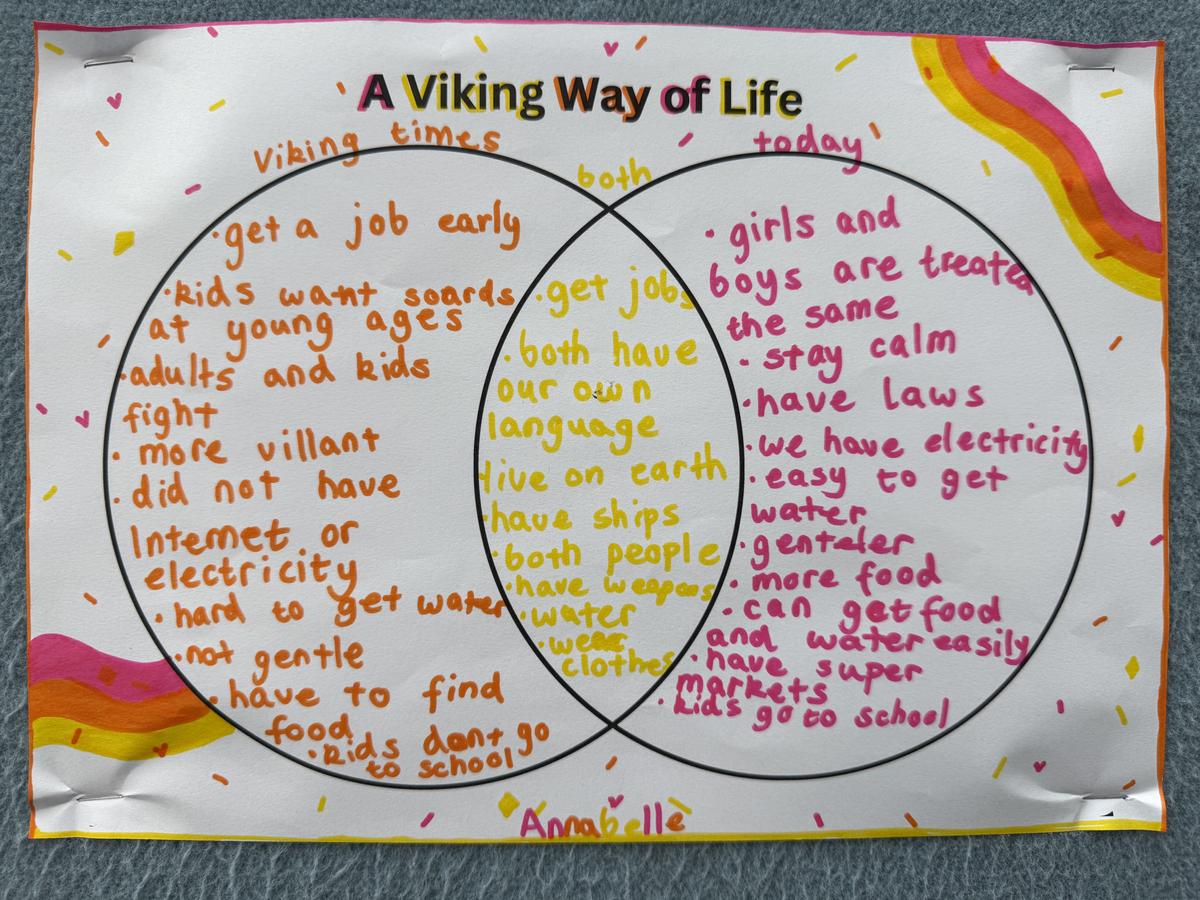 A Viking Way of Life
Viking times
both
today
·get a job early
·kids want soards
at young ages
·adults and kids
fight
· more villant
· did not have
Internet or
electricity
· hard to get water
·not gentle
·have to find
food
·kids dont go
to school
·get jobs
·both have
our own
language
live on earth
·have ships
·both people
·have weapons
·water
·wear
clothes
· girls and
boys are treated
the same
· stay calm
·have laws
·we have electricity
·easy to get
water
·genteler
· more food
·can get food
and water easily
·have super
markets
·kids go to school
Annabelle